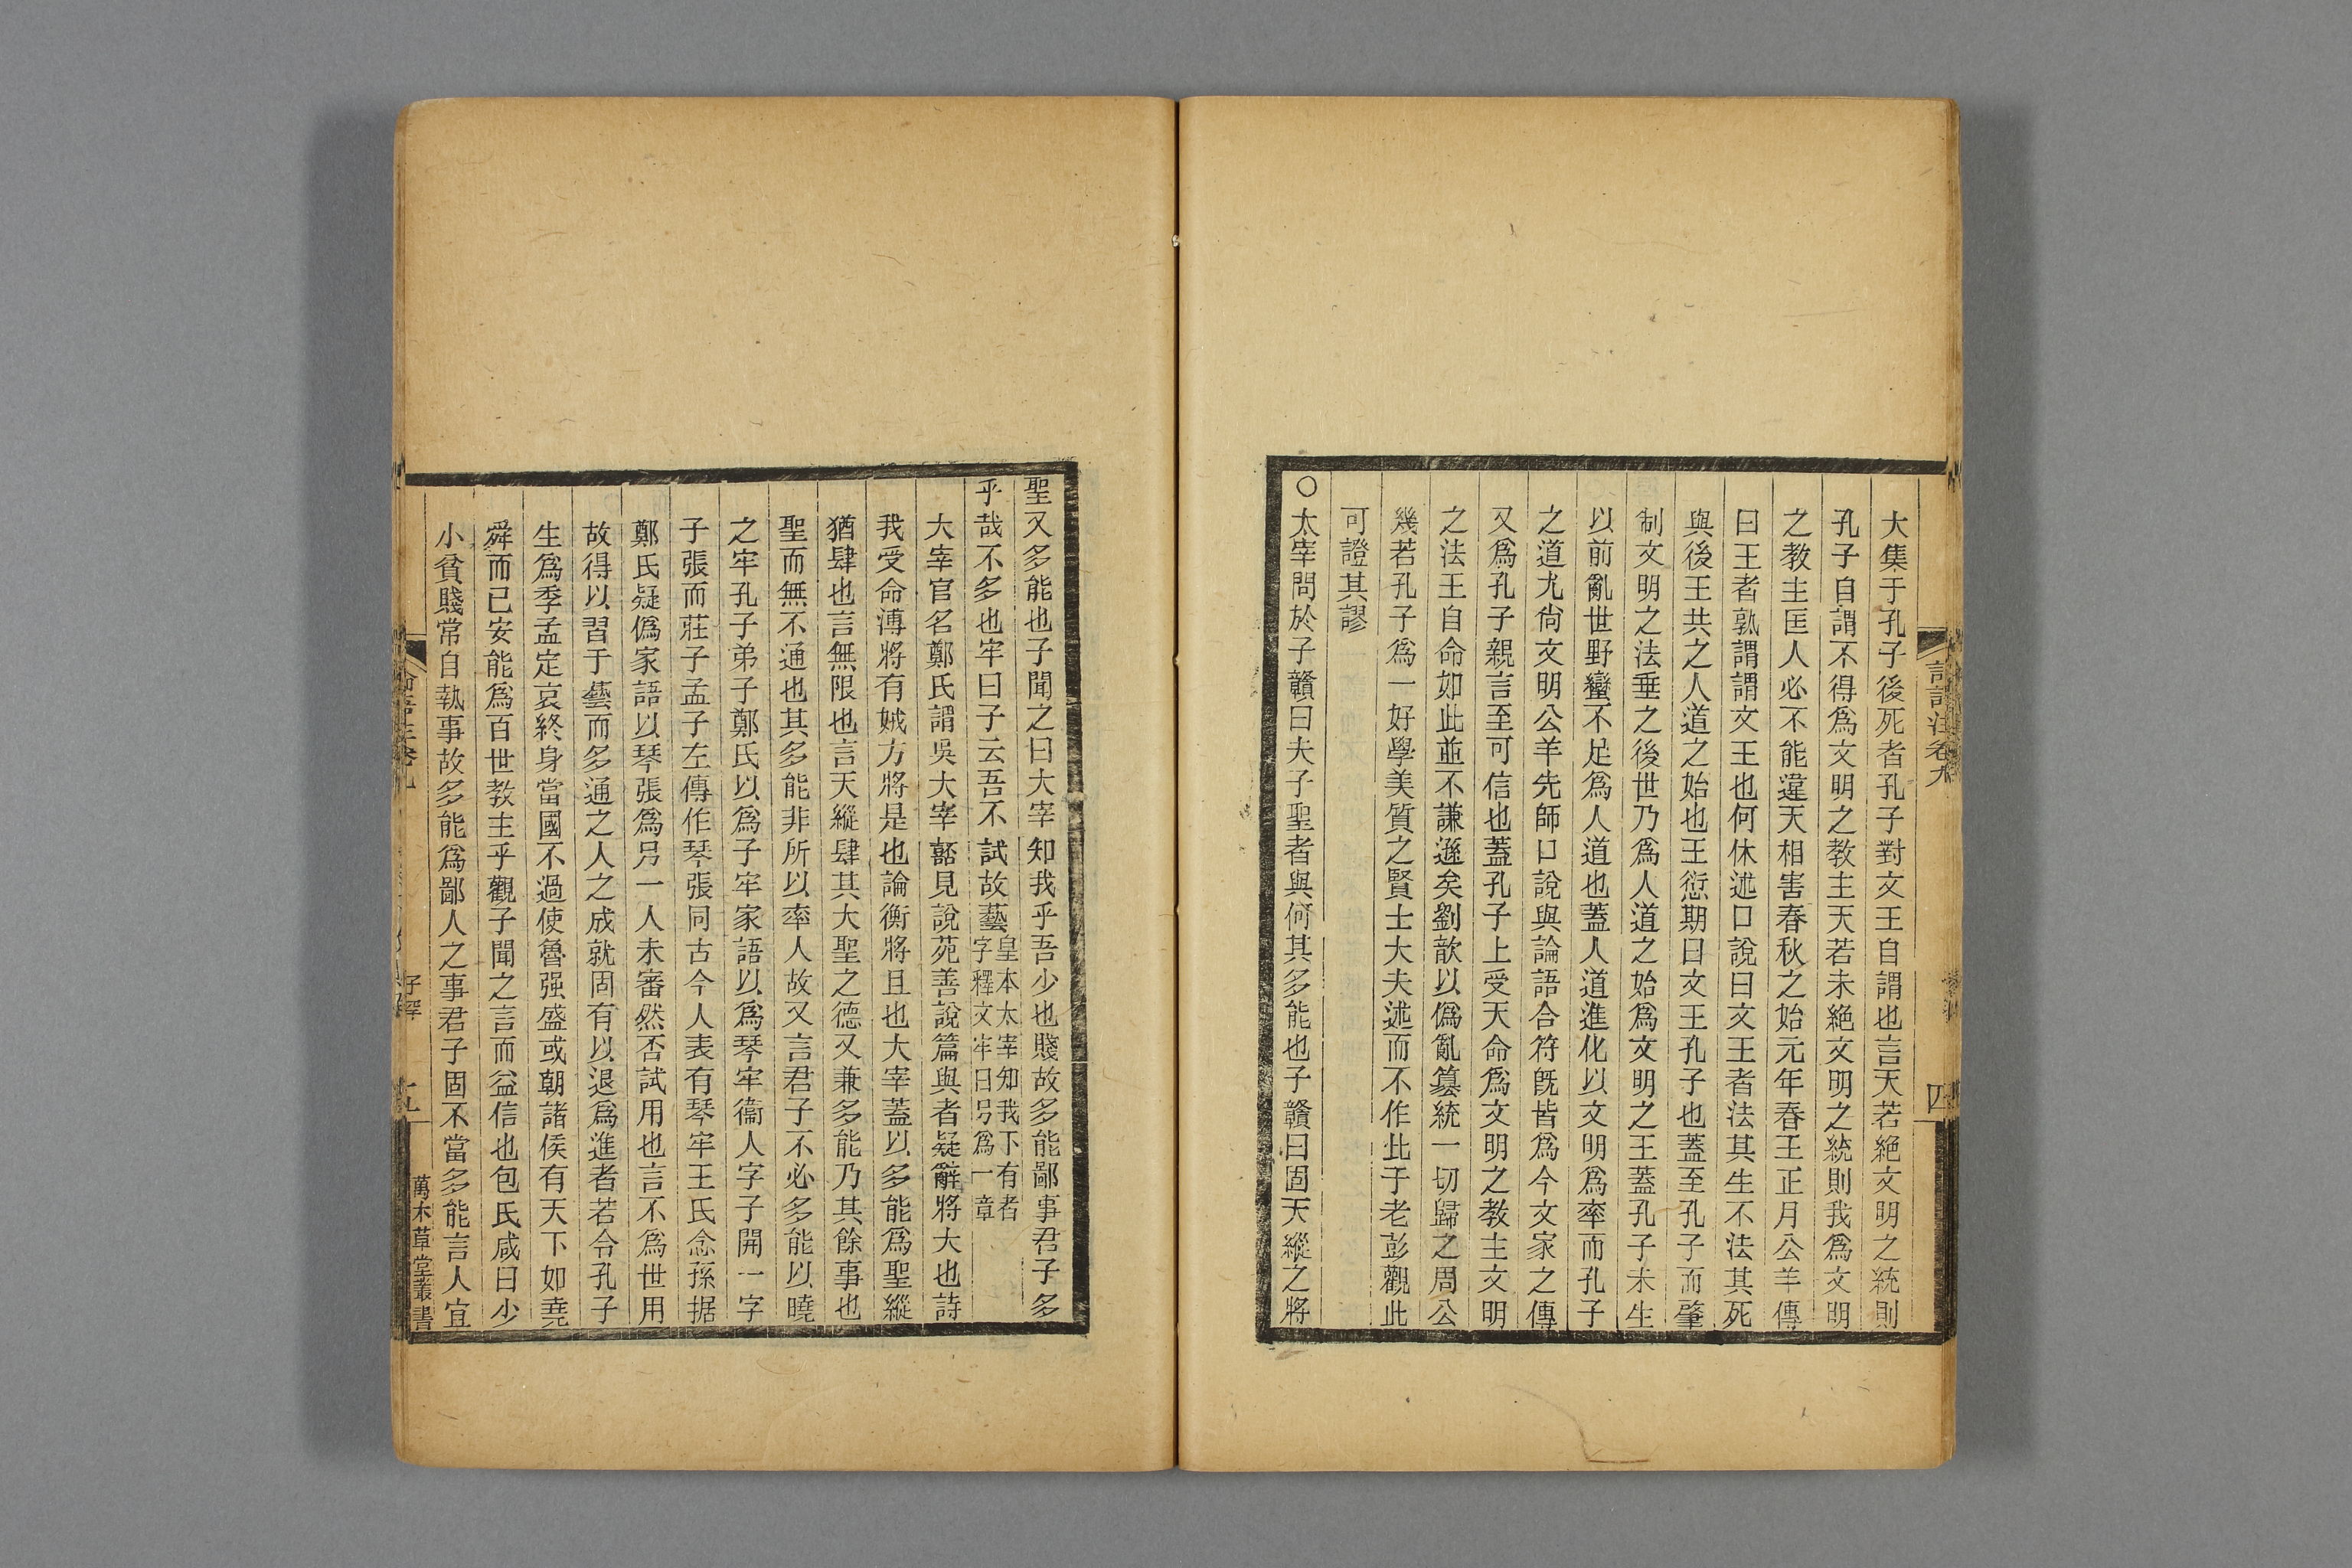 大集于孔子後死者孔子對文王自謂也言天若絕文明之統則
孔子自謂不得爲文明之教主天若未絕文明之統則我爲文明
之教主匡人必不能違天相害春秋之始元年春王正月公羊傳
曰王者孰謂謂文王也何休述口說曰文王者法其生不法其死
與後王共之人道之始也王愆期曰文王孔子也蓋至孔子而肇
制文明之法垂之後世乃爲人道之始爲文明之王蓋孔子未生
以前亂世野蠻不足爲人道也蓋人道進化以文明爲率而孔子
之道尤尙文明公羊先師口說與論語合符旣皆爲今文家之傳
又爲孔子親言至可信也蓋孔子上受天命爲文明之教主文明
之法王自命如此並不謙遜矣劉歆以僞亂篡統一切歸之周公
幾若孔子爲一好學美質之賢士大夫述而不作此于老彭觀此
可證其謬
○太宰問於子贛曰夫子聖者與何其多能也子贛曰固天縱之將
語注卷九
四
聖又多能也子聞之曰大宰知我乎吾少也賤故多能鄙事君子多
乎哉不多也牢曰子云吾不試故藝皇本太宰知我下有者
字釋文牢曰另爲一章
大宰官名鄭氏謂吳大宰嚭見說苑善說篇與者疑辭將大也詩
我受命溥將有娀方將是也論衡將且也大宰蓋以多能爲聖縱
猶肆也言無限也言天縱肆其大聖之德又兼多能乃其餘事也
聖而無不通也其多能非所以率人故又言君子不必多能以曉
之牢孔子弟子鄭氏以爲子牢家語以爲琴牢衞人字子開一字
子張而莊子孟子左傳作琴張同古今人表有琴牢王氏念孫据
鄭氏疑僞家語以琴張爲另一人未審然否試用也言不爲世用
故得以習于藝而多通之人之成就固有以退爲進者若令孔子
生爲季孟定哀終身當國不過使魯强盛或朝諸侯有天下如堯
舜而已安能爲百世教主乎觀子聞之言而益信也包氏咸曰少
小貧賤常自執事故多能爲鄙人之事君子固不當多能言人宜
子罕
萬木草堂叢書